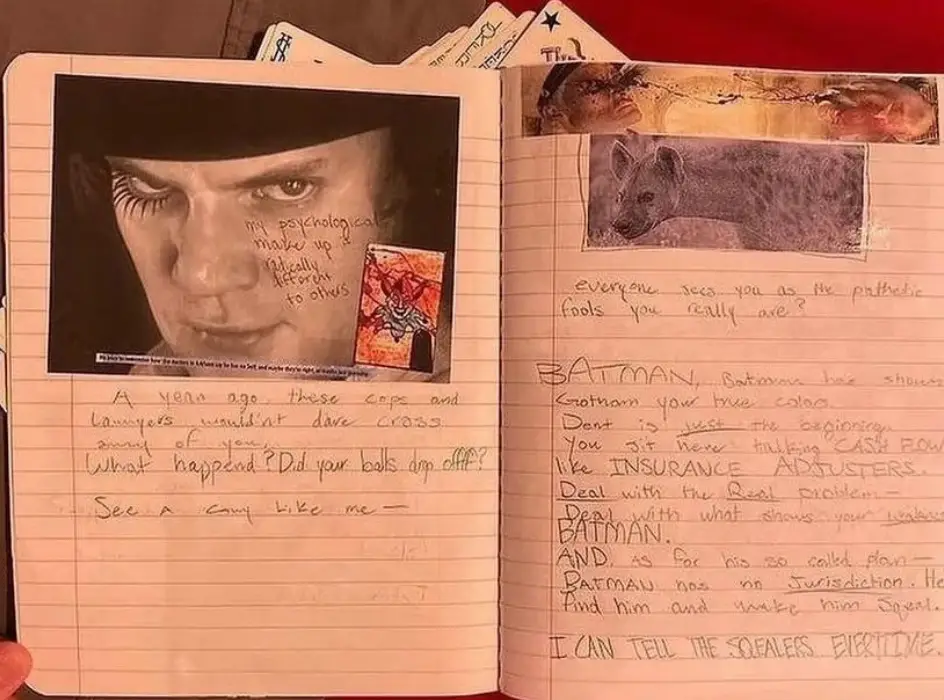 my psychological
make up is
radically
different
to others
A year ago, these cops and
Lawyers wouldn't dare cross
of you
What happend? Did your balls drop offff?
See A Guy Like me —
everyone sees you as the pathetic
fools you really are?
BATMAN, Batman has shown
Gotham your true colors.
Dent is just the beginning.
You sit here talking CASH FLOW
like INSURANCE ADJUSTERS.
Deal with the Real problem —
Deal with what shows your
BATMAN.
AND, as for his so called plan —
BATMAN has no Jurisdiction. He
find him and make him Squeal.
I CAN TELL THE SQUEALERS EVERTIME.